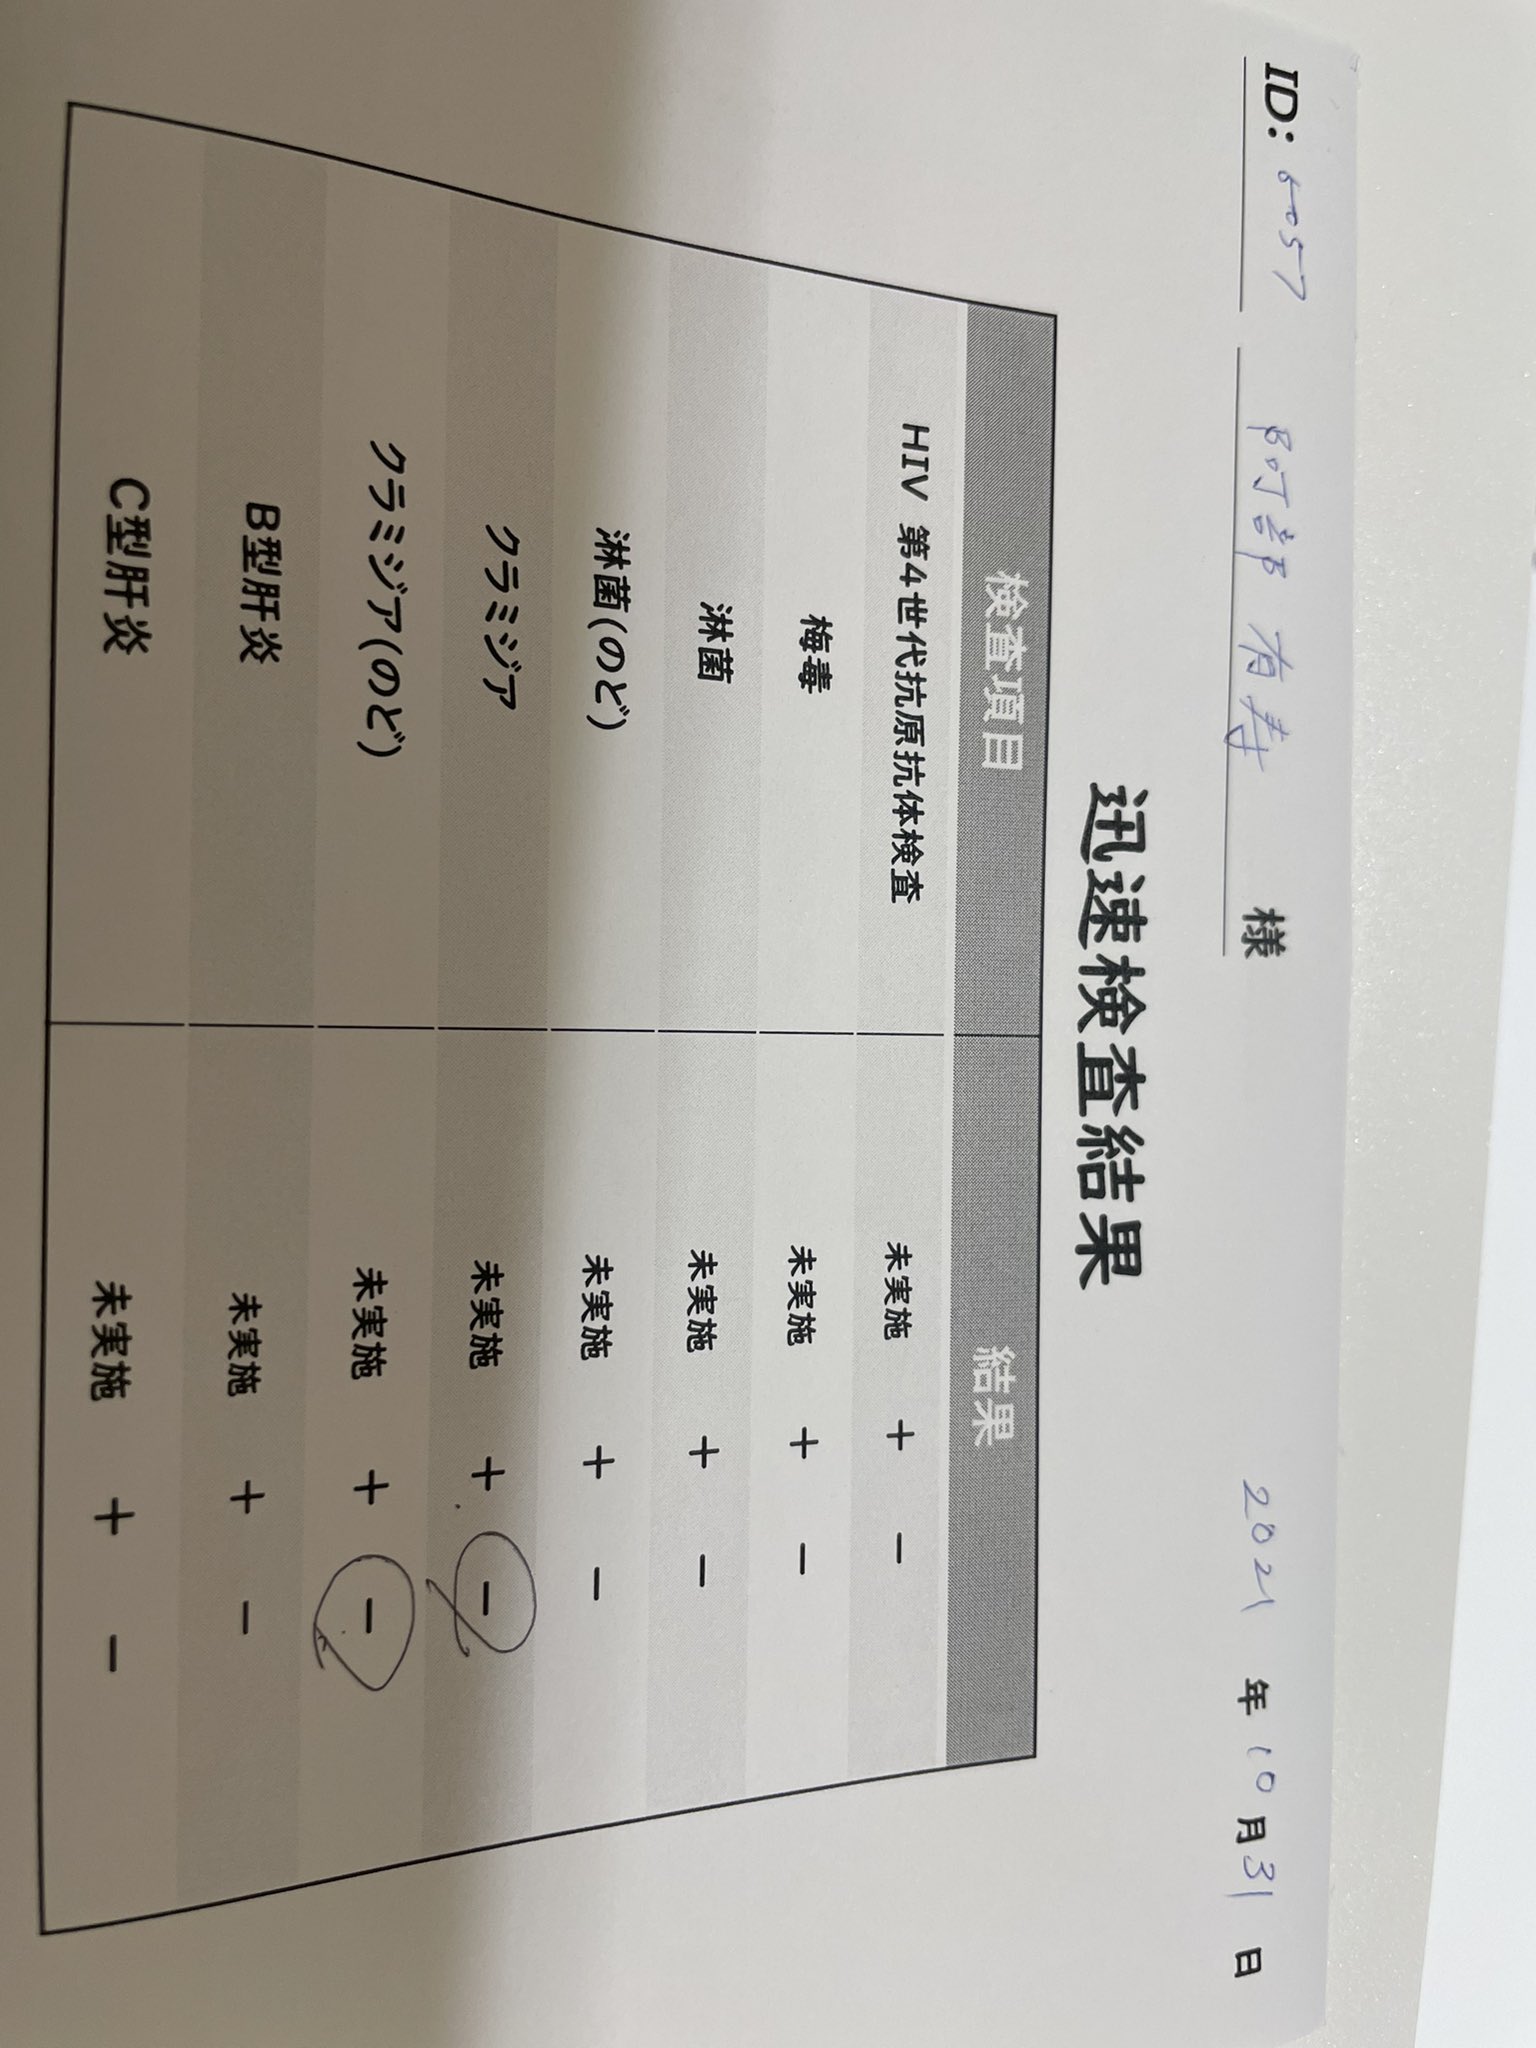 ID: 6057 阿部 有寿 様 2021 年 10 月 31 日
迅速検査結果
検査項目 結果
HIV 第4世代抗原抗体検査 未実施 + −
梅毒 未実施 + −
淋菌 未実施 + −
淋菌(のど) 未実施 + −
クラミジア 未実施 + −
クラミジア(のど) 未実施 + −
B型肝炎 未実施 + −
C型肝炎 未実施 + −